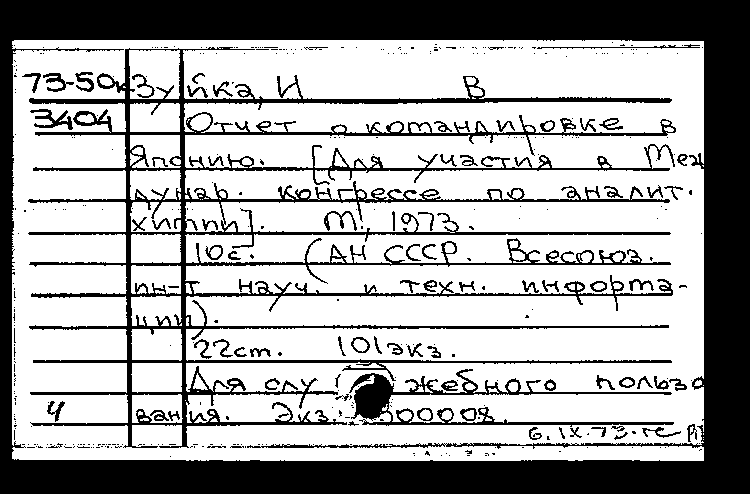 73-50к Зуйка, И В
3404 Отчет о командировке в
Японию. [Для участия в Меж
дунар. конгрессе по аналит.
химии]. М., 1973.
10с. (АН СССР. Всесоюз.
ин-т науч. и техн. информа-
ции).
22см. 101экз.
Для служебного пользо
4 вания. Экз. 000008.
6.IX.73.